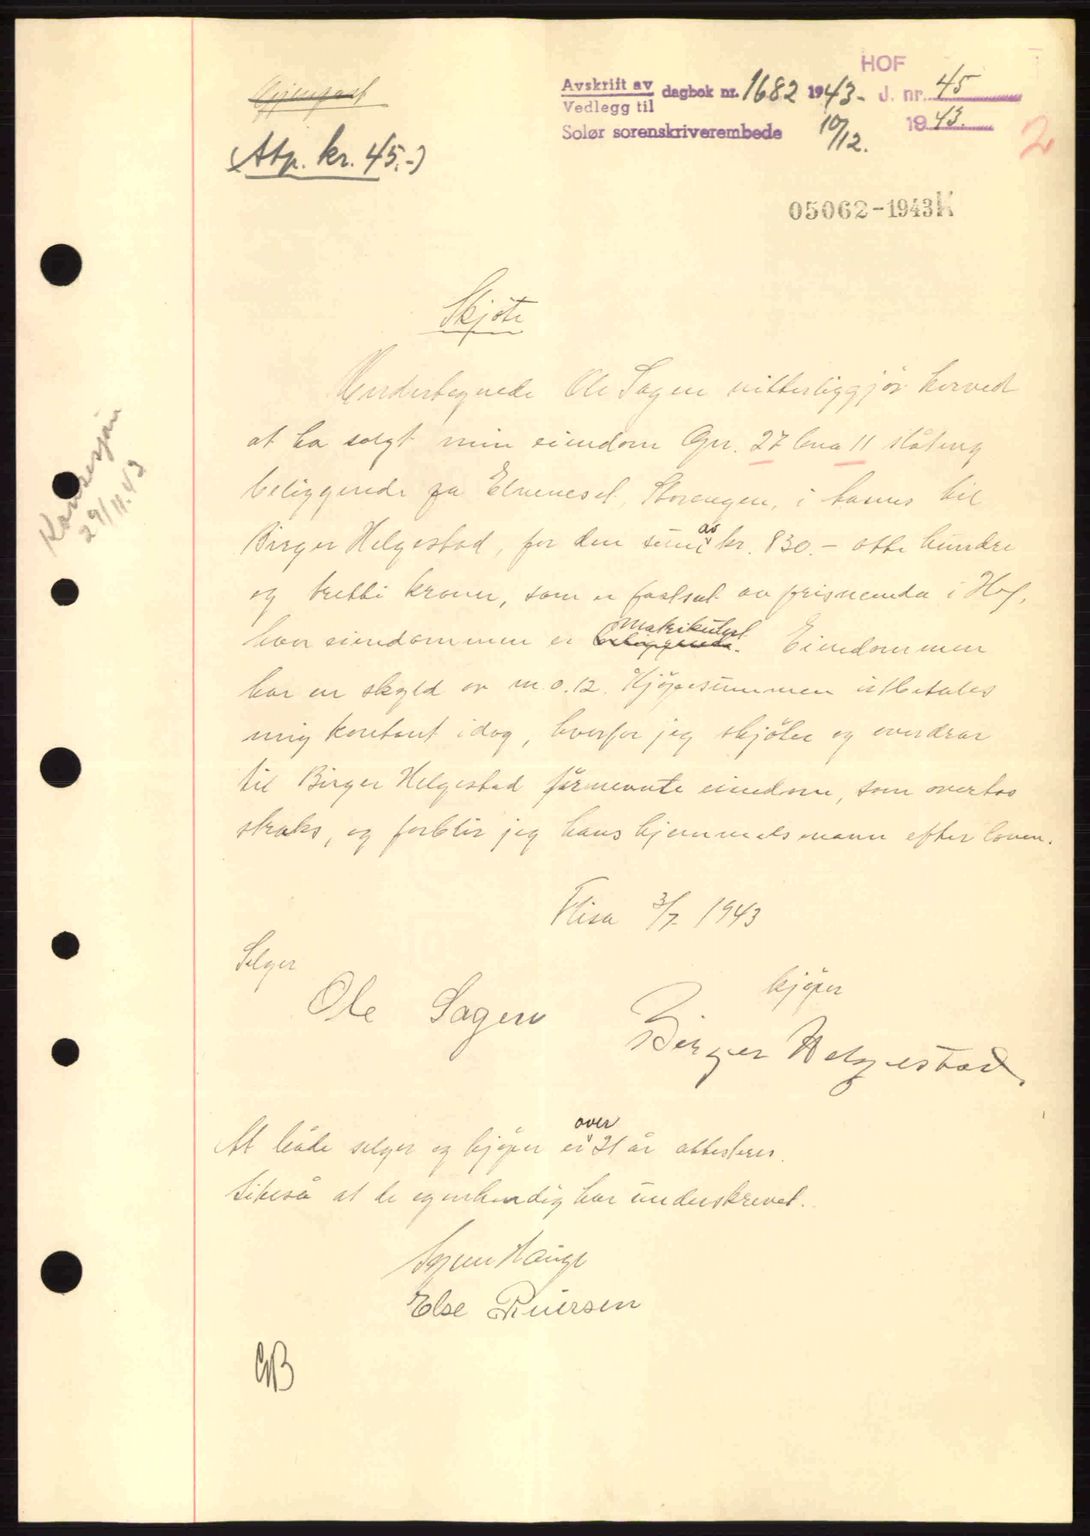 Gjenpart
(Atp. kr. 45.-)
HOF
Avskrift av
Vedlegg til
dagbok nr. 1682 1943-
J. nr. 45
Solør sorenskriverembede 10/12.
1943.
2
05062-1943K
Konsesjon
29/11.43
Skjöte
Undertegnede Ole Sagen vitterliggjör herved
at ha solgt min eiendom Gnr. 27 bnr 11
beliggende pa Storengen, i til
Birger Helgestad, for den sum av kr. 830.- otte hundre
og tretti kroner, som er fastsat av prisnemda i Hof,
hvor eiendommen er beliggende matrikulert. Eiendommen
har en skyld av m. 0.12. Kjöpesummen utbetales
mig kontant idag, hvorfor jeg skjöter og overdrar
til Birger Helgestad förnevnte eiendom, som overtas
straks, og forblir jeg hans hjemmelsmann efter loven.
Flisa 3/7 1943
Selger
kjöper
Ole Sagen
Birger Helgestad.
At både selger og kjöper er over 21 år attesteres.
likeså at de egenhendig har underskrevet.
Hauge
Else